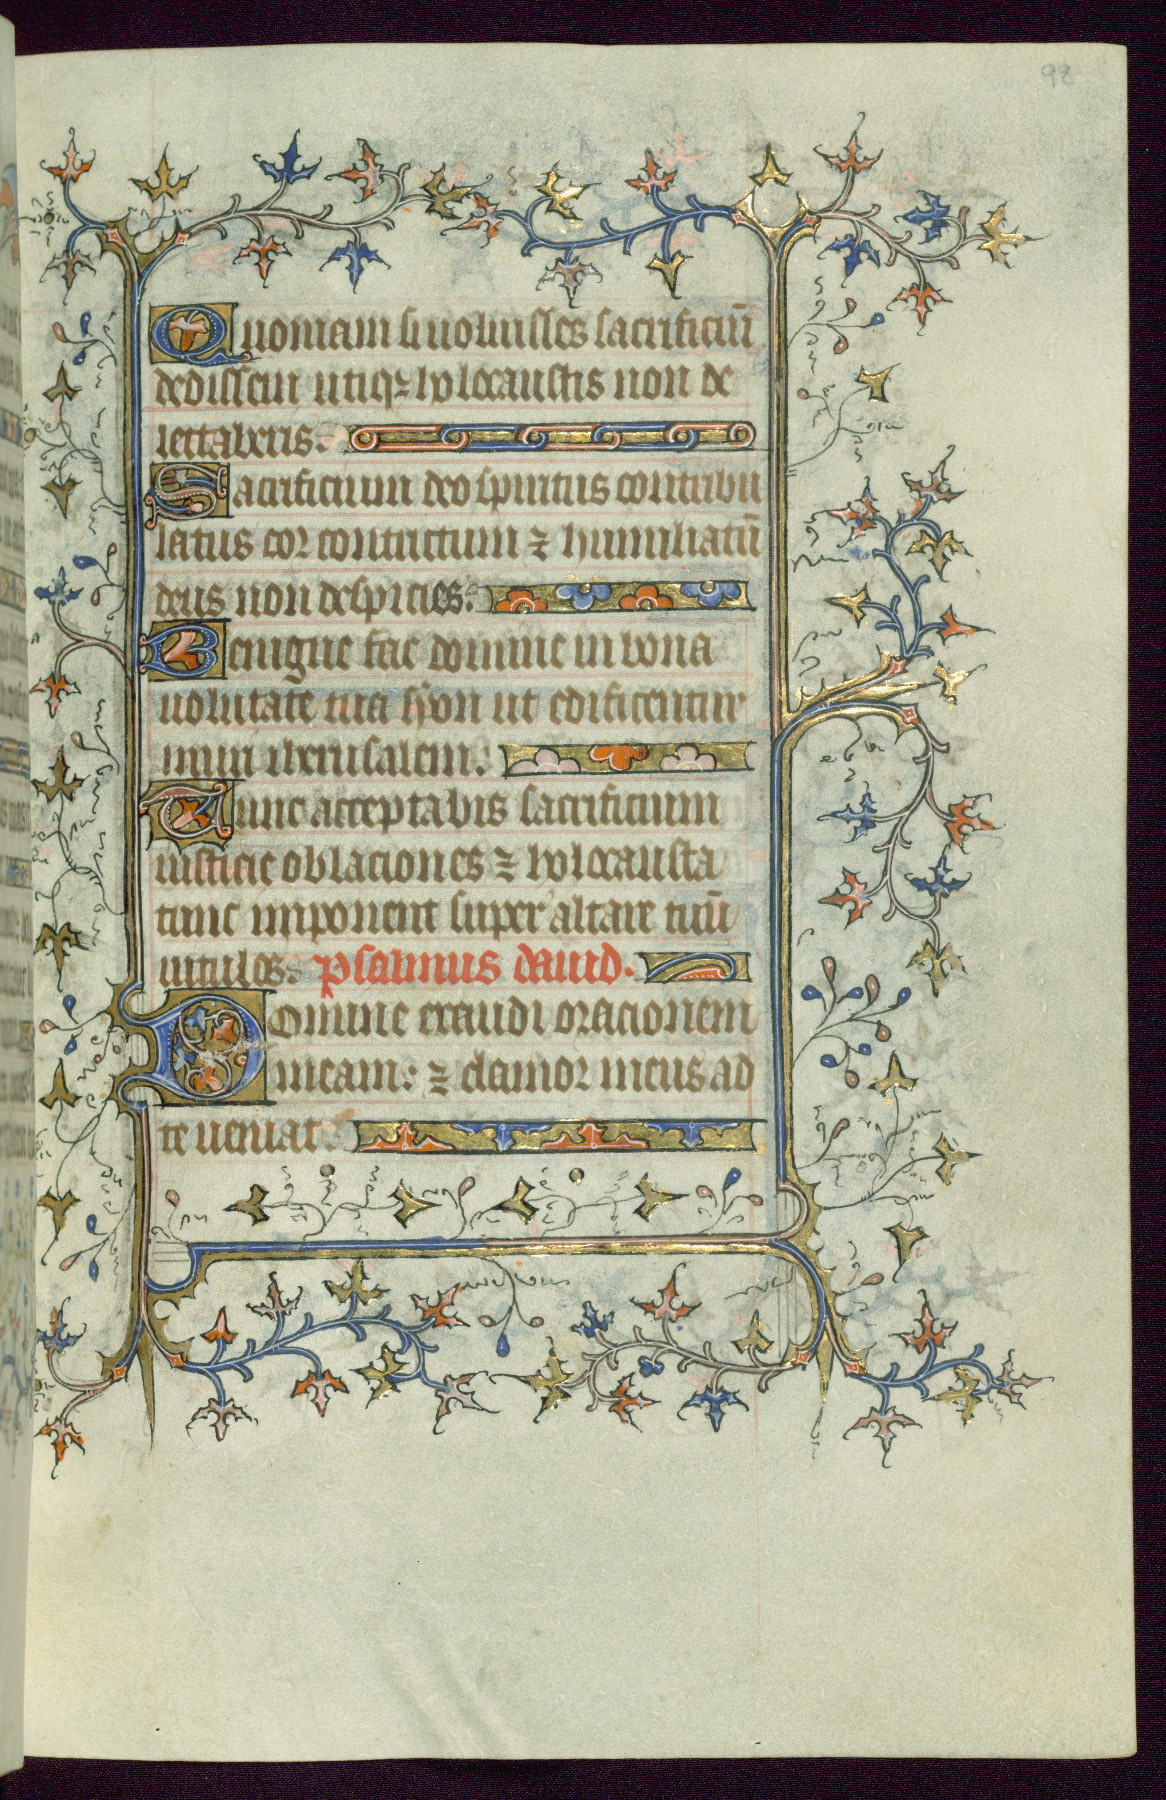 98
Quoniam si uoluisses sacrificiū
dedissem utiqꝫ holocaustis non de
lectaberis.
Sacrificium deo spiritus contribu
latus cor contritum ⁊ humiliatū
deus non despicies.
Benigne fac domine in bona
uoluntate tua syon ut edificentur
muri iherusalem.
Tunc acceptabis sacrificium
iusticie oblaciones ⁊ holocausta
tunc imponent super altare tuū
uitulos. psalmus dauid.
Domine exaudi oracionem
meam: ⁊ clamor meus ad
te ueniat.